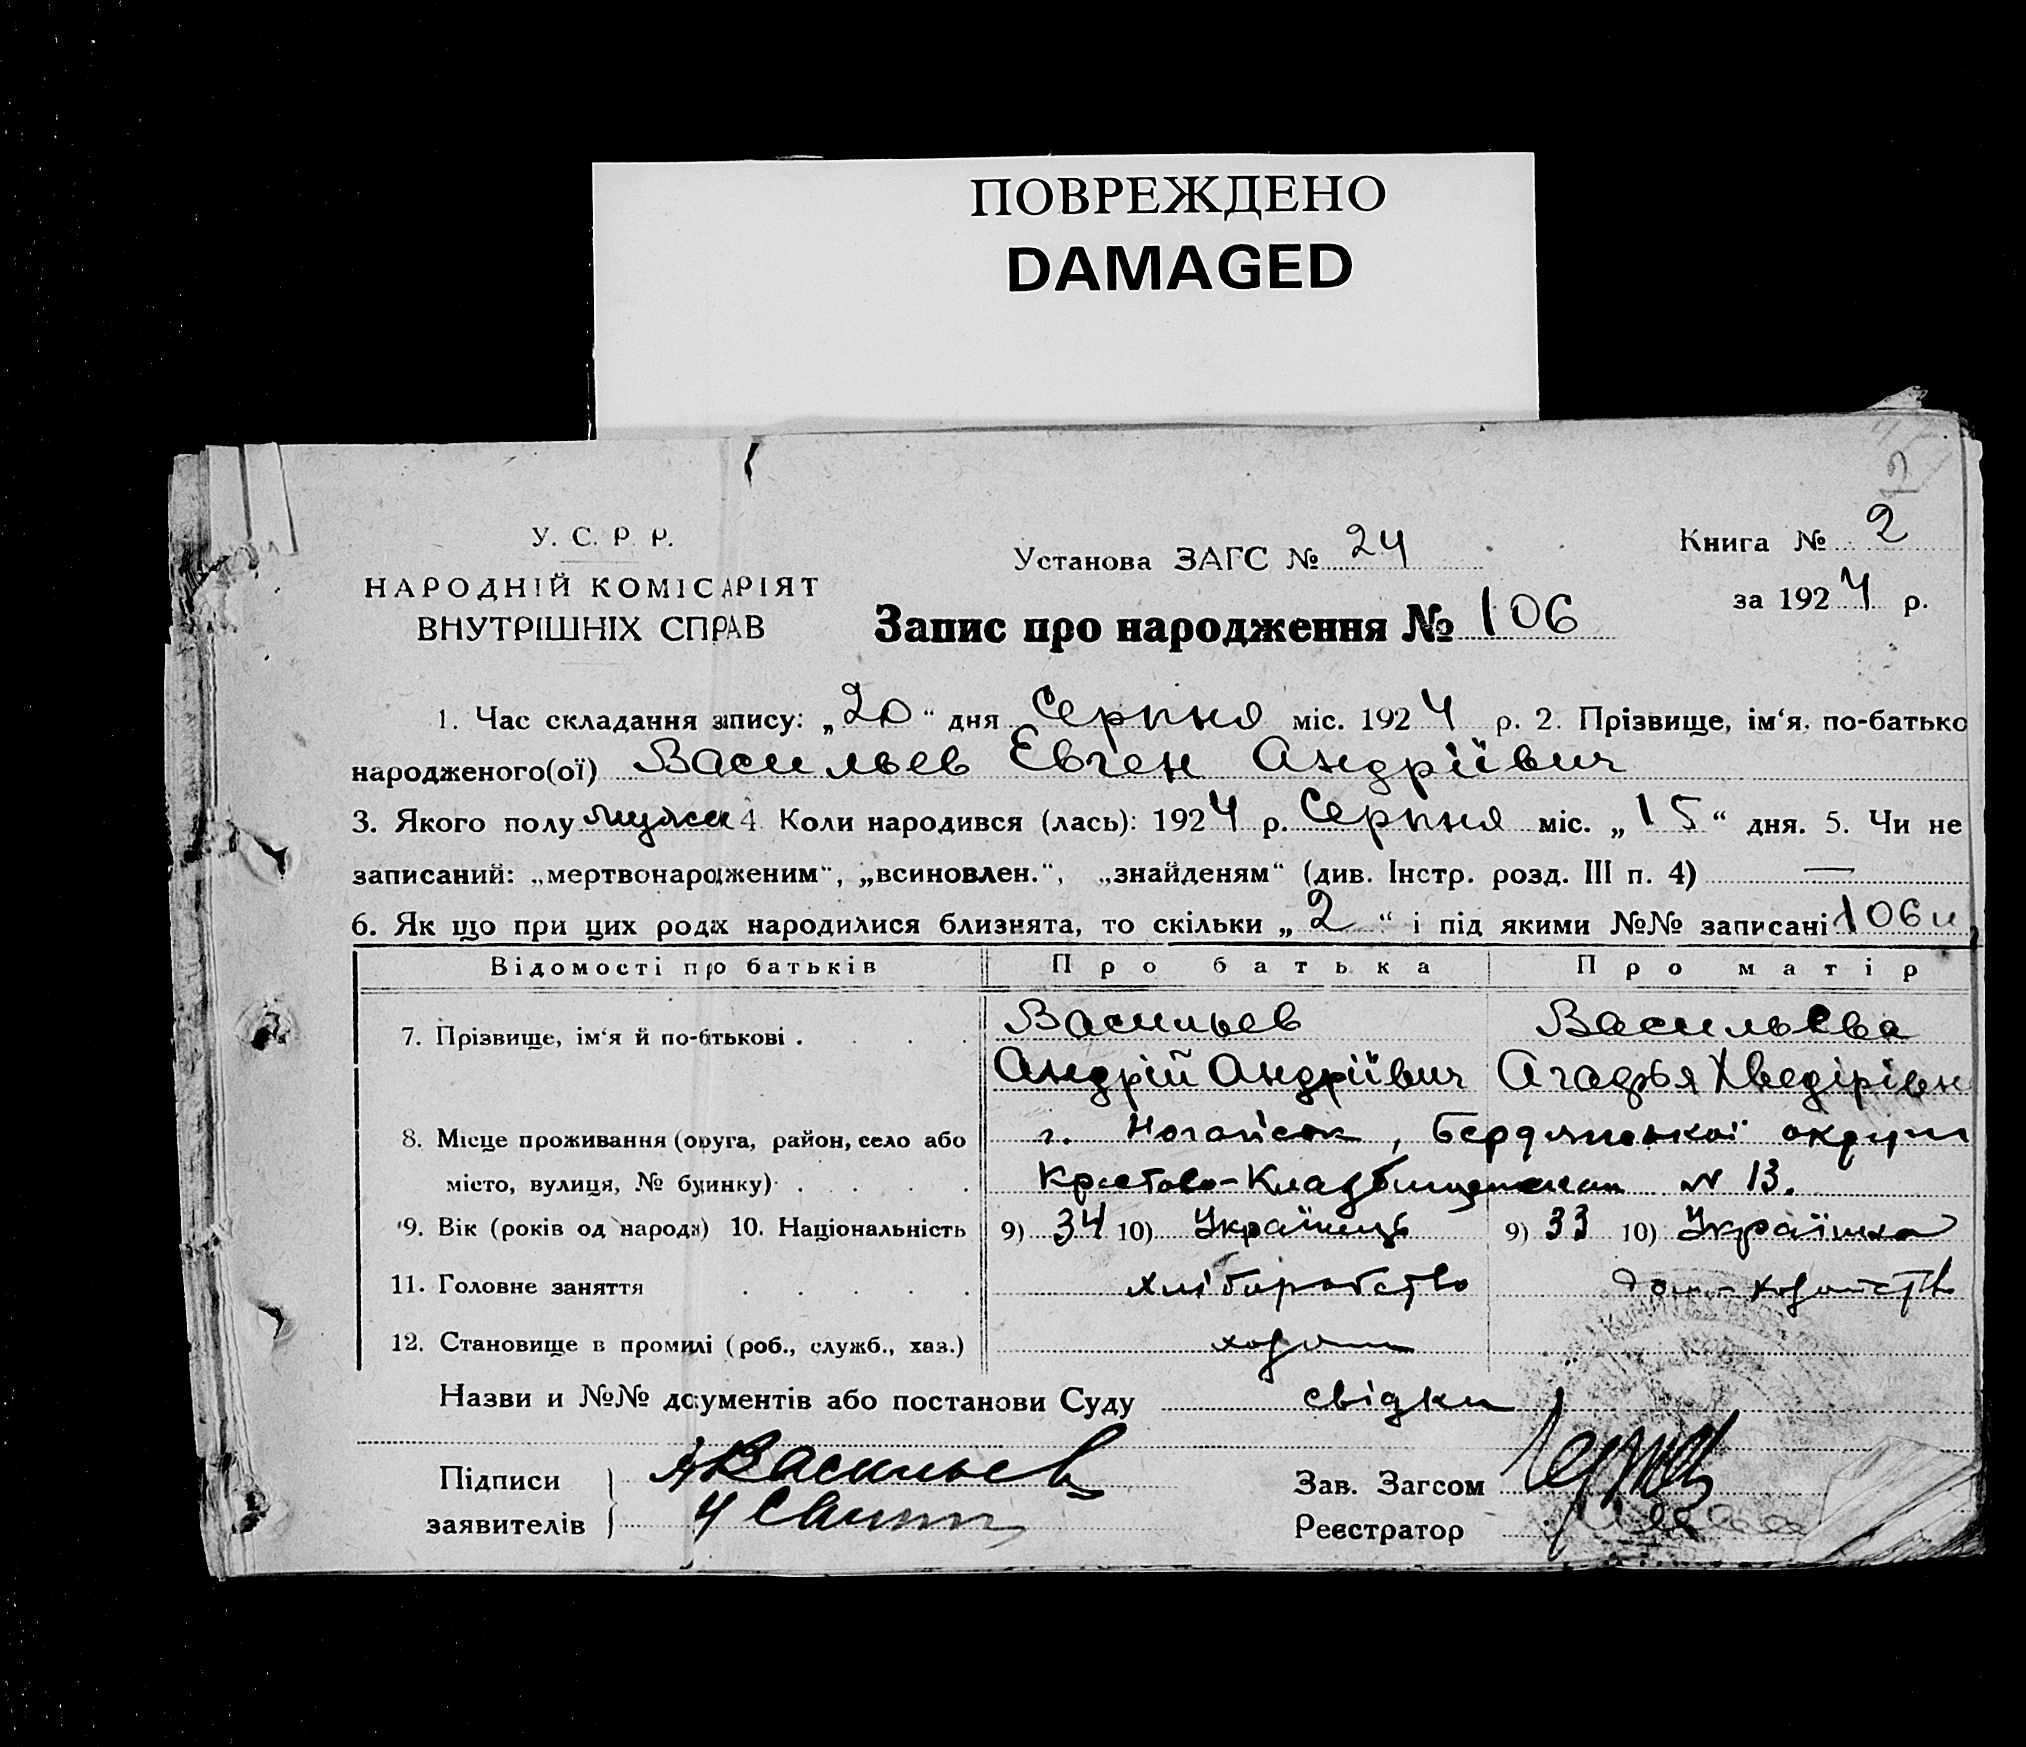 ПОВРЕЖДЕНО
DAMAGED
У. С. Р. Р.
НАРОДНІЙ КОМІСАРІЯТ
ВНУТРІШНІХ СПРАВ
Установа ЗАГС № 24
Книга № 2
за 1924 р.
Запис про народження № 106
1. Час складання запису: „20“ дня Серпня міс. 1924 р. 2. Прізвище, ім‘я, по-батько
народженого(ої) Васильев Евген Андріївич
3. Якого полу мужеск 4. Коли народився (лась): 1924 р. Серпня міс. „15“ дня. 5. Чи не
записаний: „мертвонародженим“, „всиновлен.“, „знайденям“ (див. Інстр. розд. III п. 4) —
6. Як що при цих родах народилися близнята, то скільки „2“ і під якими №№ записані 106 и
Відомості про батьків Про батька Про матір
7. Прізвище, ім‘я й по-батькові . . . . Васильев Васильева
Андрій Андріївич Агафья Хведірівн
8. Місце проживання (округа, район, село або г. Ногайськ, Бердянської округи
місто, вулиця, № будинку) . . . . Крестово-Кладбищенская № 13.
9. Вік (років од народж) 10. Національність 9) 34 10) Українець 9) 33 10) Українка
11. Головне заняття . . . . . хліборобство дом-хозяйство
12. Становище в промислі (роб., служб., хаз.) хозяин
Назви и №№ документів або постанови Суду свідки
Підписи А Васильев Зав. Загсом
заявителів Реєстратор